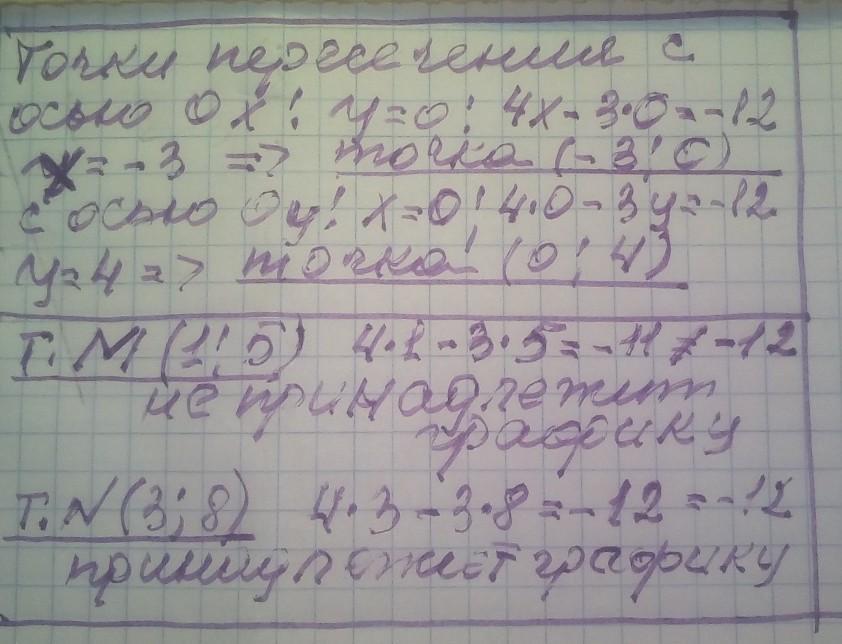 Точки пересечения с
осью Ох: y=0; 4х-3·0=-12
х=-3 => точка (-3; 0)
с осью Оу: х=0; 4·0-3у=-12
у=4 => точка (0; 4)
Т. М (1; 5) 4·1-3·5=-11≠-12
не принадлежит
графику
т. N (3; 8) 4·3-3·8=-12=-12
принадлежит графику